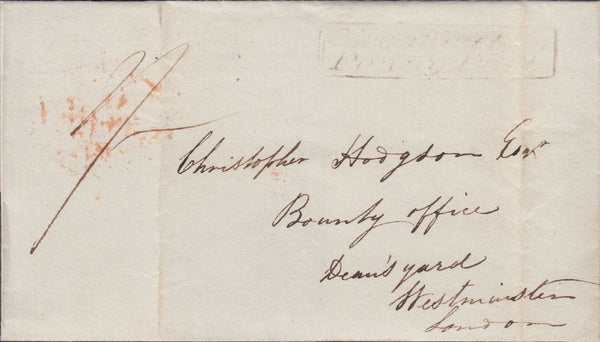 Penny Post
Christopher Hodgson Esqr
Bounty office
Dean's yard
Westminster
London